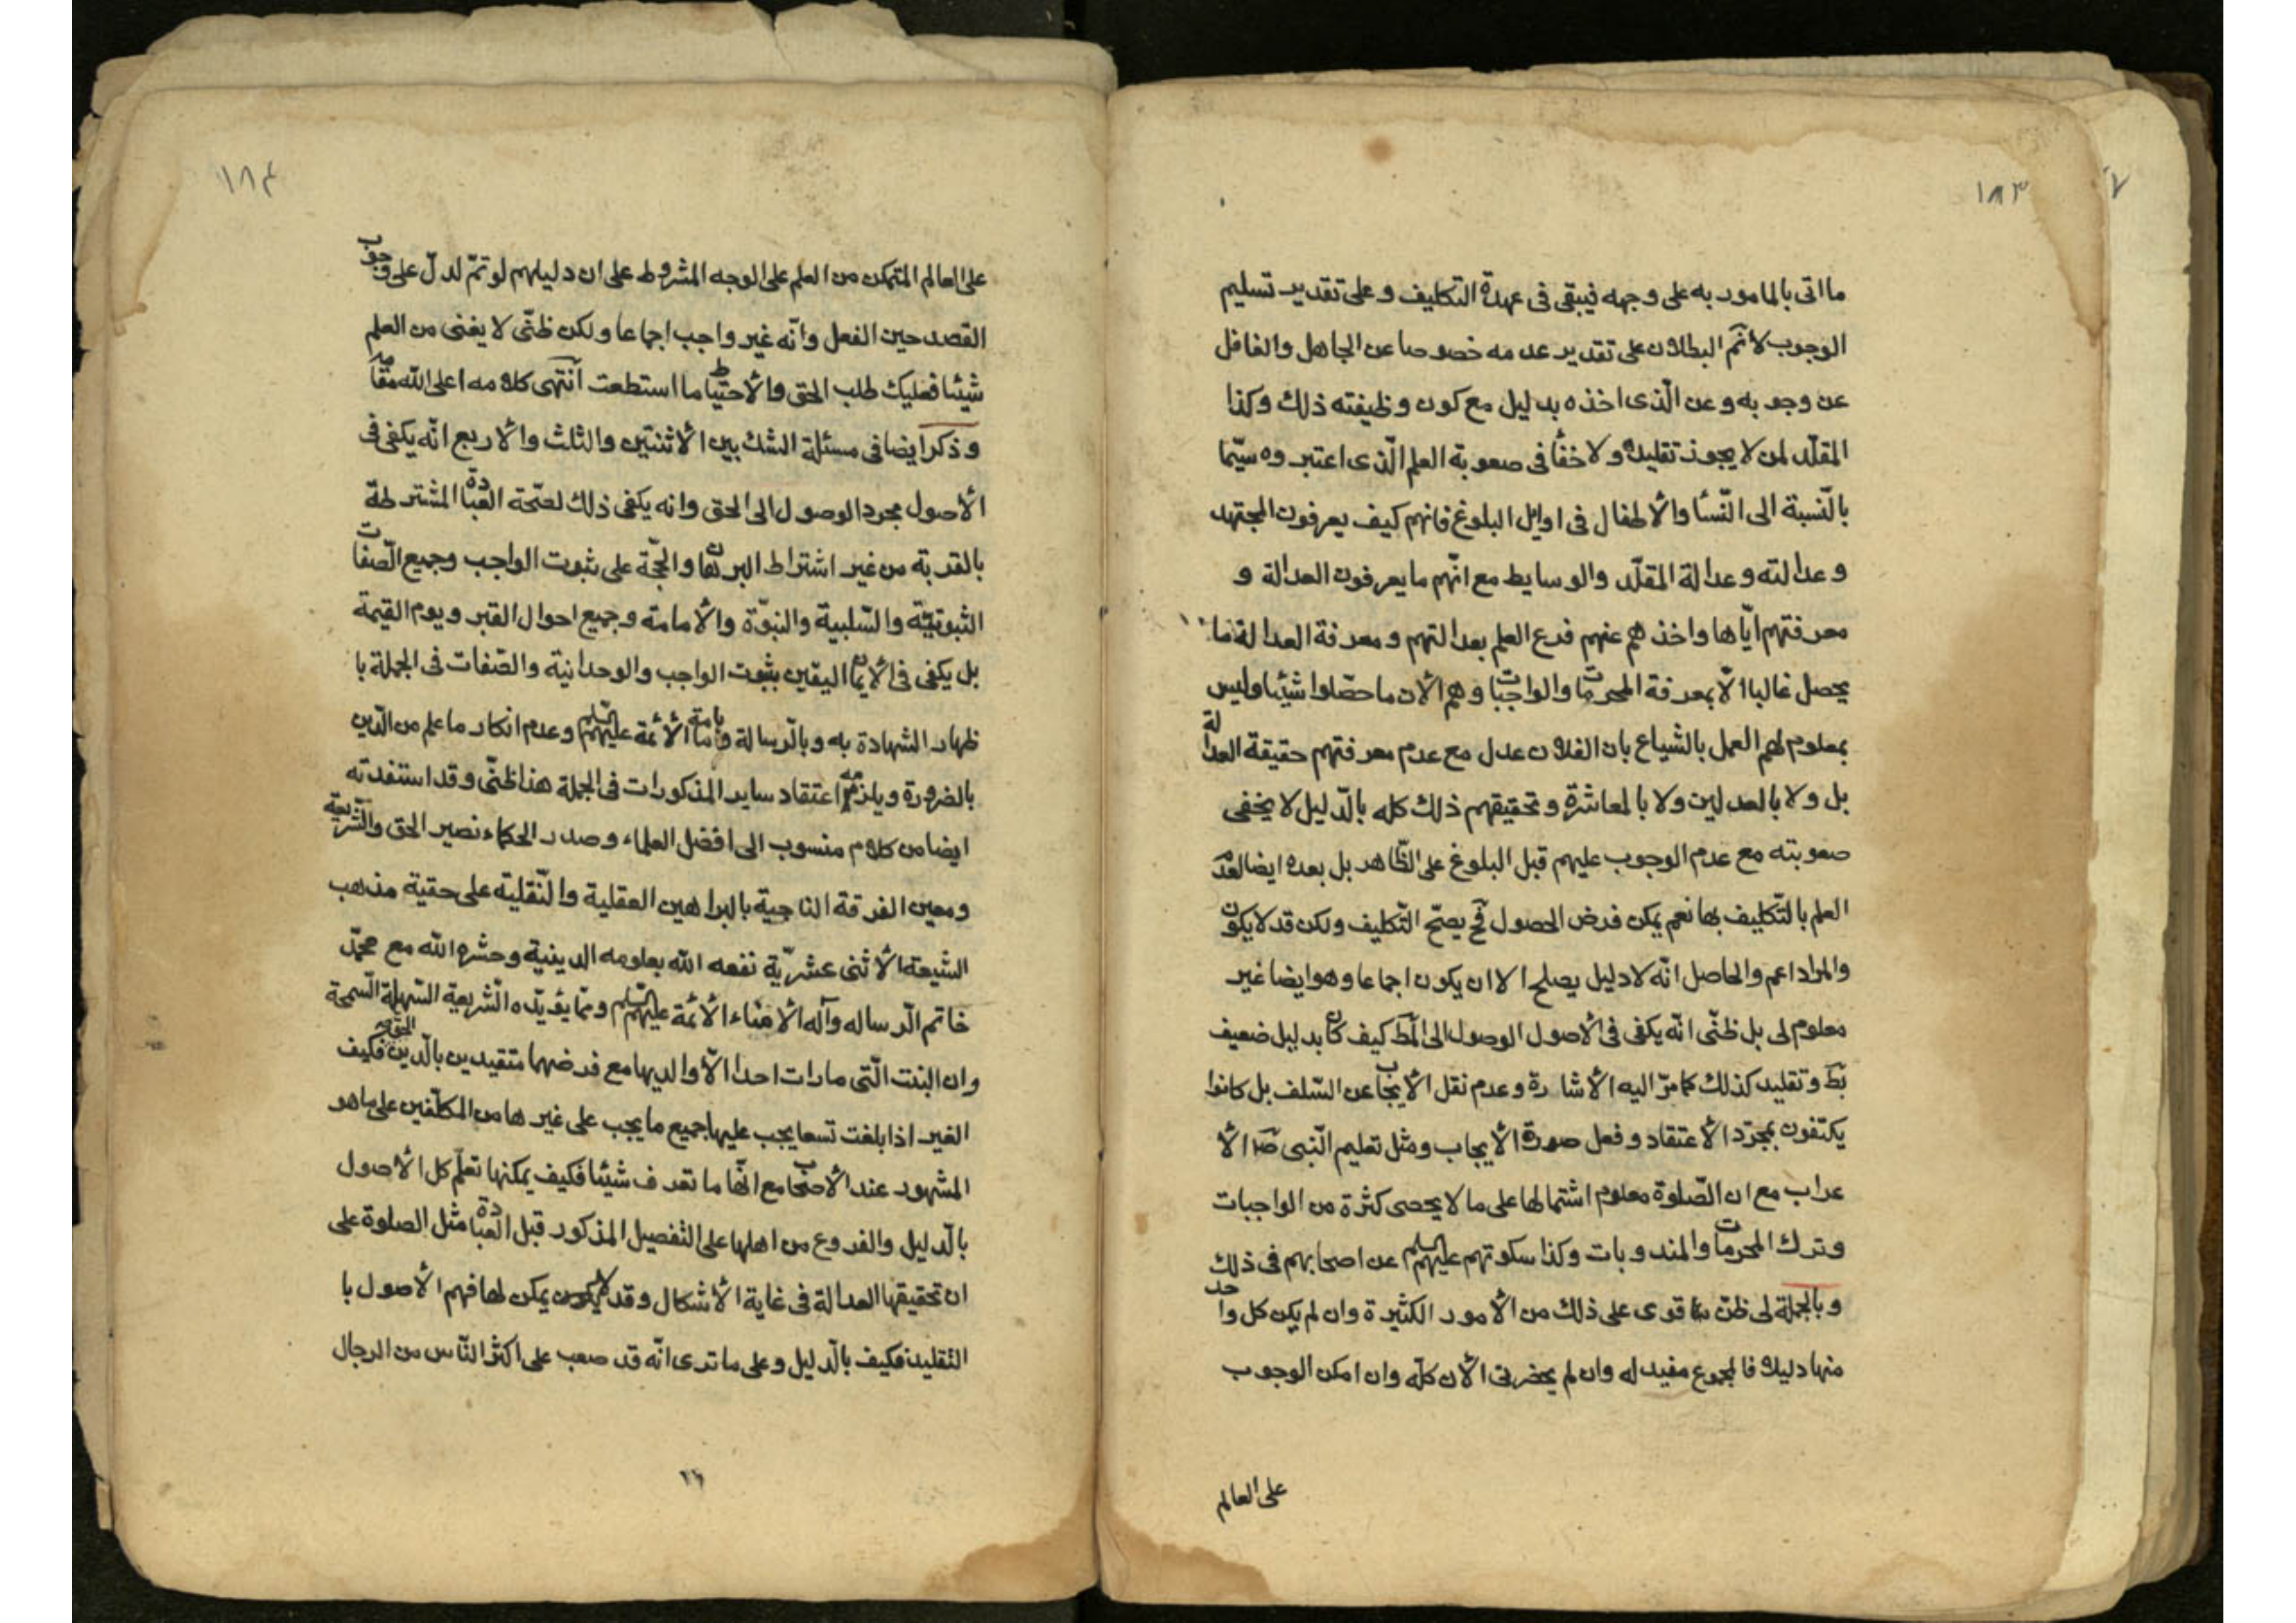 ١٨٣
ما اتى بالمامور به على وجهه فيبقى فى عهدة التكليف وعلى تقدير تسليم
الوجوب لا نم البطلان على تقدير عدمه خصوصا عن الجاهل والغافل
عن وجوبه وعن الّذى اخذه بدليل مع كون وظيفته ذلك وكذا
المقلّد لمن لا يجوز تقليده ولا خفأ فى صعوبة العلم الّذى اعتبروه سيّما
بالنّسبة الى النّسأ والأطفال فى اوايل البلوغ فانهم كيف يعرفون المجتهد
وعدالته وعدالة المقلّد والوسايط مع انّهم ما يعرفون العدالة و
معرفتهم ايّاها واخذهم عنهم فرع العلم بعدالتهم ومعرفة العدالة ما
يحصل غالبا الّا بمعرفة المحرمات والواجبات وهم الأن ما حصّلوا شيئا وليس
بمعلوم لهم العمل بالشياع بان الفلان عدل مع عدم معرفتهم حقيقة العدالة
بل ولا بالعدلين ولا بالمعاشرة وتحقيقهم ذلك كله بالدّليل لا يخفى
صعوبته مع عدم الوجوب عليهم قبل البلوغ على الظّاهر بل بعده ايضا لعدم
العلم بالتّكليف بها نعم يمكن فرض الحصول فح يصحّ التّكليف ولكن قد لا يكون
والمراد اعم والحاصل انّه لا دليل يصلح الا ان يكون اجماعا وهو ايضا غير
معلوم لى بل ظنّى انّه يكفى فى الأصول الوصول الى المط كيف كان بدليل ضعيف
بط وتقليد كذلك كما مرّ اليه الأشارة وعدم نقل الأيجاب عن السّلف بل كانوا
يكتفون بمجرّد الأعتقاد وفعل صورة الأيجاب ومثل تعليم النّبى ص الأ
عراب مع ان الصّلوة معلوم اشتمالها على ما لا يحصى كثرة من الواجبات
وترك المحرمات والمندوبات وكذا سكوتهم عليهم السلم عن اصحابهم فى ذلك
وبالجملة لى ظنّ قوى على ذلك من الأمور الكثيرة وان لم يكن كل واحد
منها دليلا فالمجموع مفيد له وان لم يحضرنى الأن كلّه وان امكن الوجوب
على العالم
١٨٤
على العالم المتمكن من العلم على الوجه المشروط على ان دليلهم لو تمّ لدلّ على وجوب
القصد حين الفعل وانّه غير واجب اجماعا ولكن ظنّى لا يغنى من العلم
شيئا فعليك طلب الحق والأحتياط ما استطعت انتهى كلامه اعلى الله مقامه
وذكر ايضا فى مسئلة الشك بين الأثنتين والثلث والأربع انّه يكفى فى
الأصول مجرد الوصول الى الحق وانه يكفى ذلك لصّحة العبادة المشترطة
بالقربة من غير اشتراط البرهان والحجّة على ثبوت الواجب وجميع الصّفات
الثبوتيّة والسّلبية والنبوّة والأمامة وجميع احوال القبر ويوم القيمة
بل يكفى فى الأيمان اليقين بثبوت الواجب والوحدانية والصّفات فى الجملة با
ظهار الشهادة به وبالرّسالة وبامامة الأئمة عليهم السلم وعدم انكار ما علم من الدّين
بالضرورة ويلزمه اعتقاد ساير المذكورات فى الجملة هذا ظنّى وقد استفدته
ايضا من كلام منسوب الى افضل العلماء وصدر الحكماء نصير الحق والشّريعة
ومعين الفرقة الناجية بالبراهين العقلية والنّقلية على حقية مذهب
الشيعة الأثنى عشريّة نفعه الله بعلومه الدينية وحشره الله مع محمّد
خاتم الرّساله وآله الأمناء الأئمة عليهم السلم وممّا يؤيّده الشّريعة السّهلة السّمحة
وان البنت الّتى مارات احدا الّا والديها مع فرضهما متقيدين بالدّين الحق فكيف
الغير اذا بلغت تسعا يجب عليها جميع ما يجب على غيرها من المكلّفين على ما هو
المشهور عند الأصحاب مع انّها ما تعرف شيئا فكيف يمكنها تعلّم كل الأصول
بالدّليل والفروع من اهلها على التفصيل المذكور قبل العبادة مثل الصلوة على
ان تحقيقها العدالة فى غاية الأشكال وقد لا يمكن لها فهم الأصول با
التقليد فكيف بالدّليل وعلى ما ترى انّه قد صعب على اكثر النّاس من الرجال